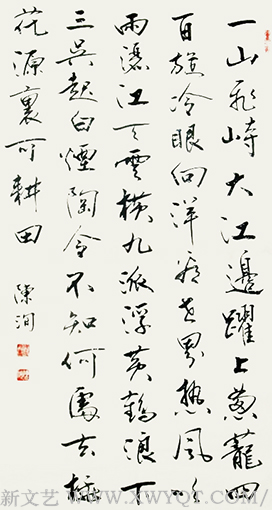 一山飛峙大江邊躍上葱蘢四
百旋冷眼向洋看世界热風吹
雨灑江天雲横九派浮黄鶴浪下
三吴起白煙陶令不知何處去桃
花源裏可耕田 陳洵
新文艺 - WWW.XWYQT.COM -